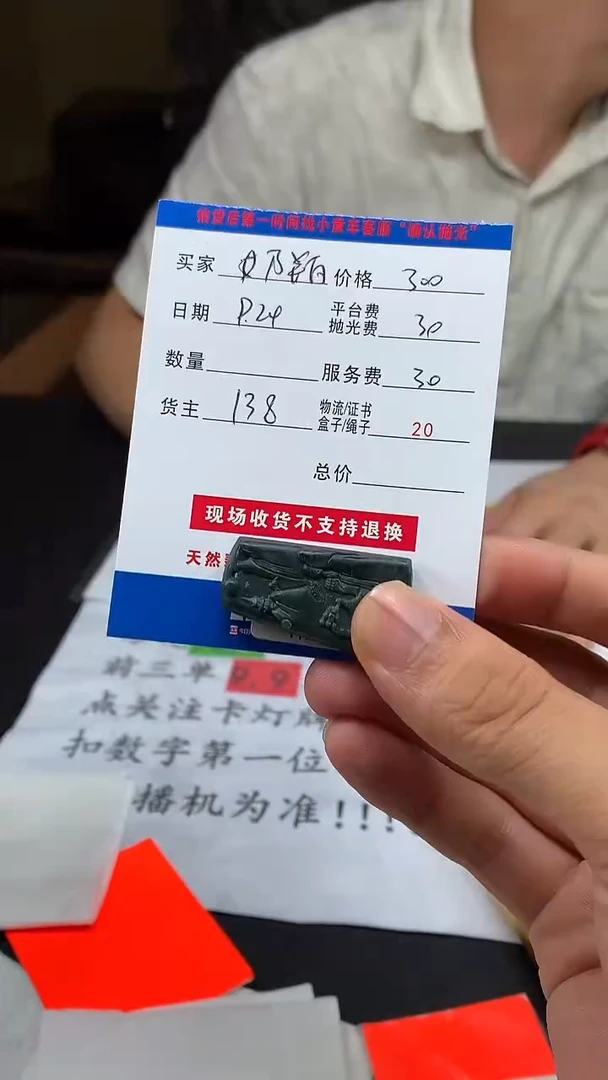 收货后第一时间找小黄车客服"确认抛光"
买家 价格 300
日期 9.24 平台费 抛光费 30
数量 服务费 30
货主 138 物流/证书 盒子/绳子 20
总价
现场收货不支持退换
天然
前三单 9.9
点关注卡灯牌
扣数字第一位
播机为准!!!